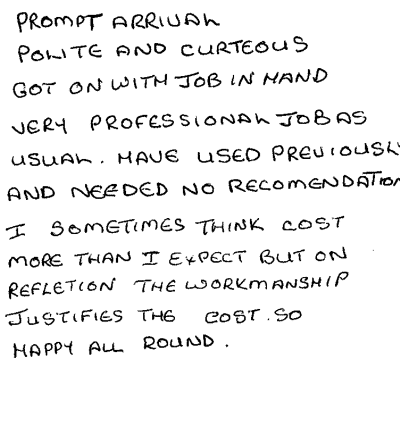 PROMPT ARRIVAL
POLITE AND CURTEOUS
GOT ON WITH JOB IN HAND
VERY PROFESSIONAL JOB AS
USUAL. HAVE USED PREVIOUSLY
AND NEEDED NO RECOMENDATION
I SOMETIMES THINK COST
MORE THAN I EXPECT BUT ON
REFLETION THE WORKMANSHIP
JUSTIFIES THE COST. SO
HAPPY ALL ROUND.